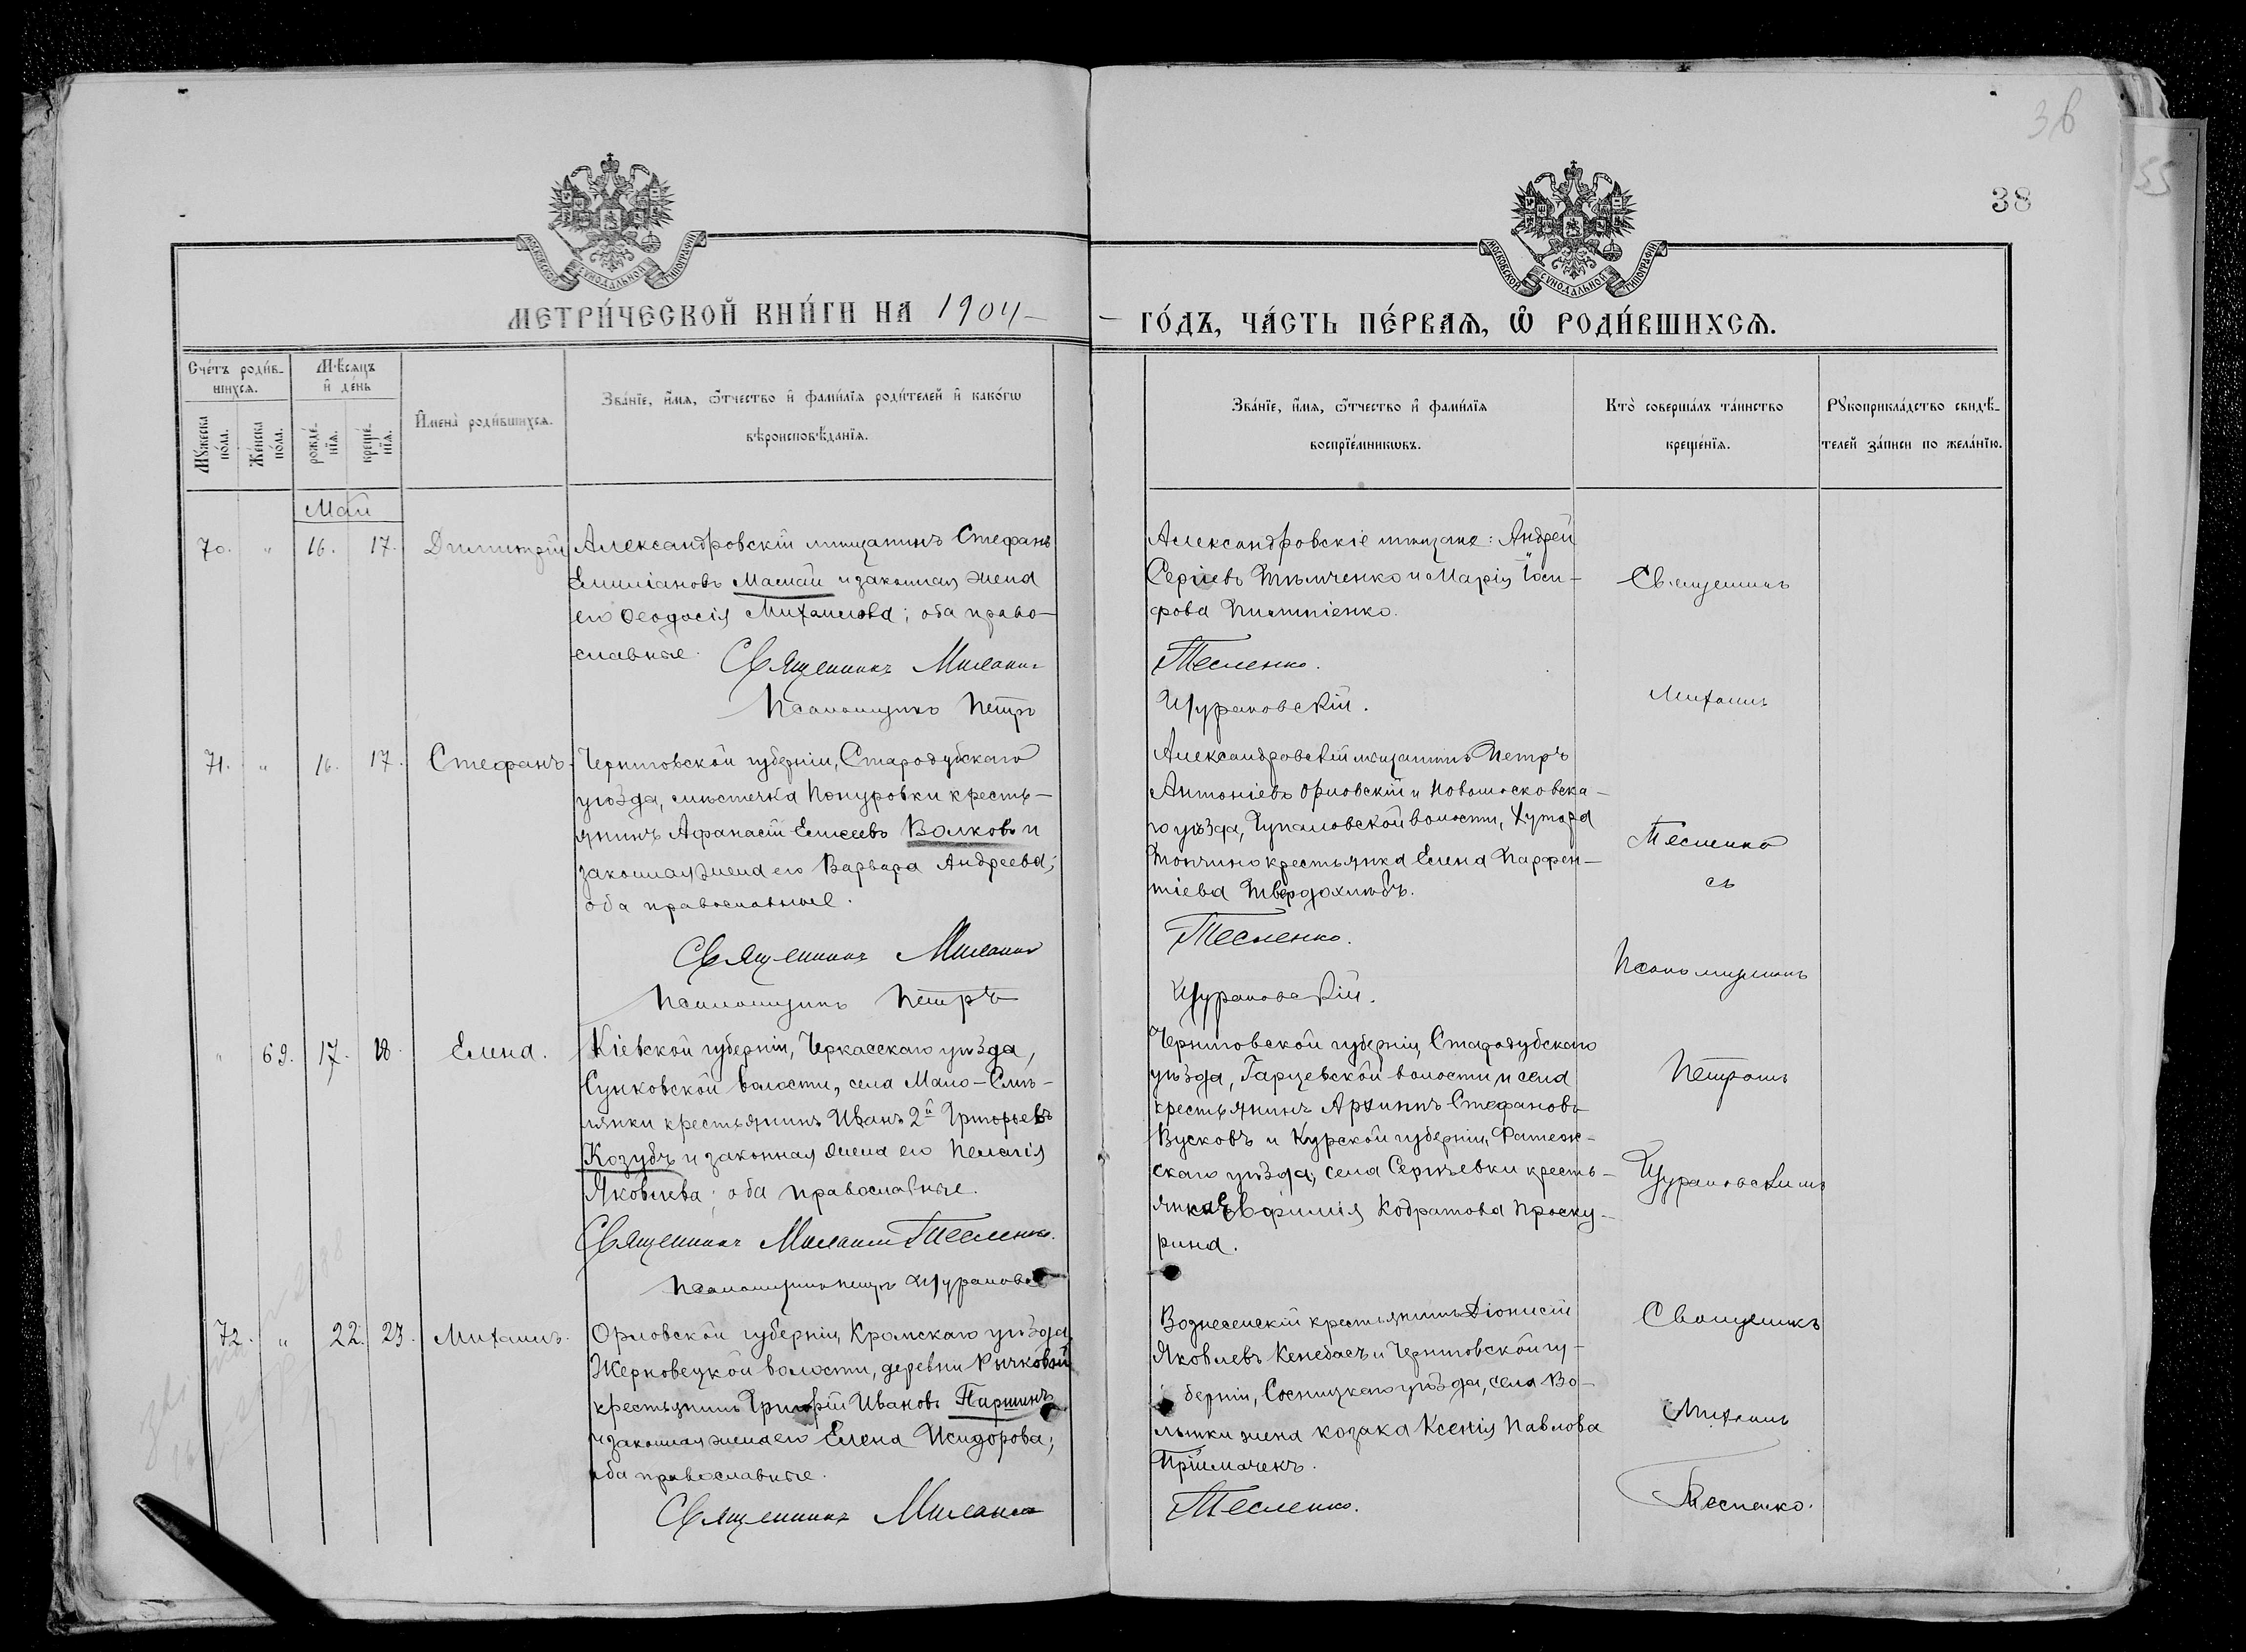 38
55
38
МОСКОВСКОЙ СУНОДАЛЬНОЙ ТИПОГРАФІИ
МОСКОВСКОЙ СУНОДАЛЬНОЙ ТИПОГРАФІИ
МЕТРИ́ЧЕСКОЙ КНИ́ГИ НА 1904 –
– ГО́ДЪ, ЧА́СТЬ ПЕ́РВАѦ, Ѽ РОДИ́ВШИХСѦ.
Сче́тъ роди́в-
шихсѧ.
Мꙋжеска по́ла.
Же́нска по́ла.
Мѣ́сѧцъ
и҆ де́нь
рожде́-нїѧ.
креще́-нїѧ.
И҆мена̀ роди́вшихсѧ.
Зва́нїе, и҆́мѧ, ѻ҆́тчество и҆ фами́лїѧ роди́телей и҆ како́гѡ
вѣроисповѣ́данїѧ.
Зва́нїе, и҆́мѧ, ѻ҆́тчество и҆ фами́лїѧ
воспрїе́мникѡвъ.
Кто̀ соверша́лъ та́инство
креще́нїѧ.
Рꙋкоприкла́дство свидѣ́-
телей за́писи по жела́нїю.
Май
70. " 16. 17. Димитрій
Александровскій мѣщанинъ Стефанъ
Емиліановъ Маснай и законная жена
его Ѳеодосія Михаилова; оба право-
славные.
Священникъ Михаилъ
Псаломщикъ Петръ
Александровскіе мѣщане: Андрей
Сергіевъ и Марія Іоси-
фова
Тесленко.
Щурановскій.
Священникъ
Михаилъ
71. " 16. 17. Стефанъ.
Черниговской губерніи, Стародубскаго
уѣзда, мѣстечка Понуровки кресть-
янинъ Афанасій Елисеевъ Волковъ и
законная жена его Варвара Андреева;
оба православные.
Священникъ Михаилъ
Псаломщикъ Петръ
Александровскій мѣщанинъ Петръ
Антоніевъ Орловскій и Новомосковска-
го уѣзда, Чупаловской волости, хутора
крестьянка Елена Парфен-
тіева Твердохлѣбъ.
Тесленко.
Щурановскій.
Тесленко
съ
Псаломщикомъ
" 69. 17. 18. Елена.
Кіевской губерніи, Черкасскаго уѣзда,
Сунковской волости, села Мало-Смѣ-
лянки крестьянинъ Иванъ 2й Григорьевъ
Козубъ и законная жена его Пелагія
Яковлева; оба православные.
Священникъ Михаилъ Тесленко.
Псаломщикъ Петръ Щурановскій
Черниговской губерніи, Стародубскаго
уѣзда, Гарцевской волости и села
крестьянинъ Архиппъ Стефановъ
Вусковъ и Курской губерніи, Фатеж-
скаго уѣзда, села Сергѣевки кресть-
янка Евфимія Кодратова Проску-
рина.
Петромъ
Щурановскимъ
72. " 22. 23. Михаилъ.
Орловской губерніи, Кромскаго уѣзда,
Жерновецкой волости, деревни Рычковой
крестьянинъ Григорій Ивановъ Паршинъ
и законная жена его Елена Исидорова;
оба православные.
Священникъ Михаилъ
Вознесенскій крестьянинъ Діонисій
Яковлевъ Кенебасъ и Черниговской гу-
берніи, Сосницкаго уѣзда, села Во-
лынки жена козака Ксенія Павлова
Пріймаченъ.
Тесленко.
Священникъ
Михаилъ
Тесленко.